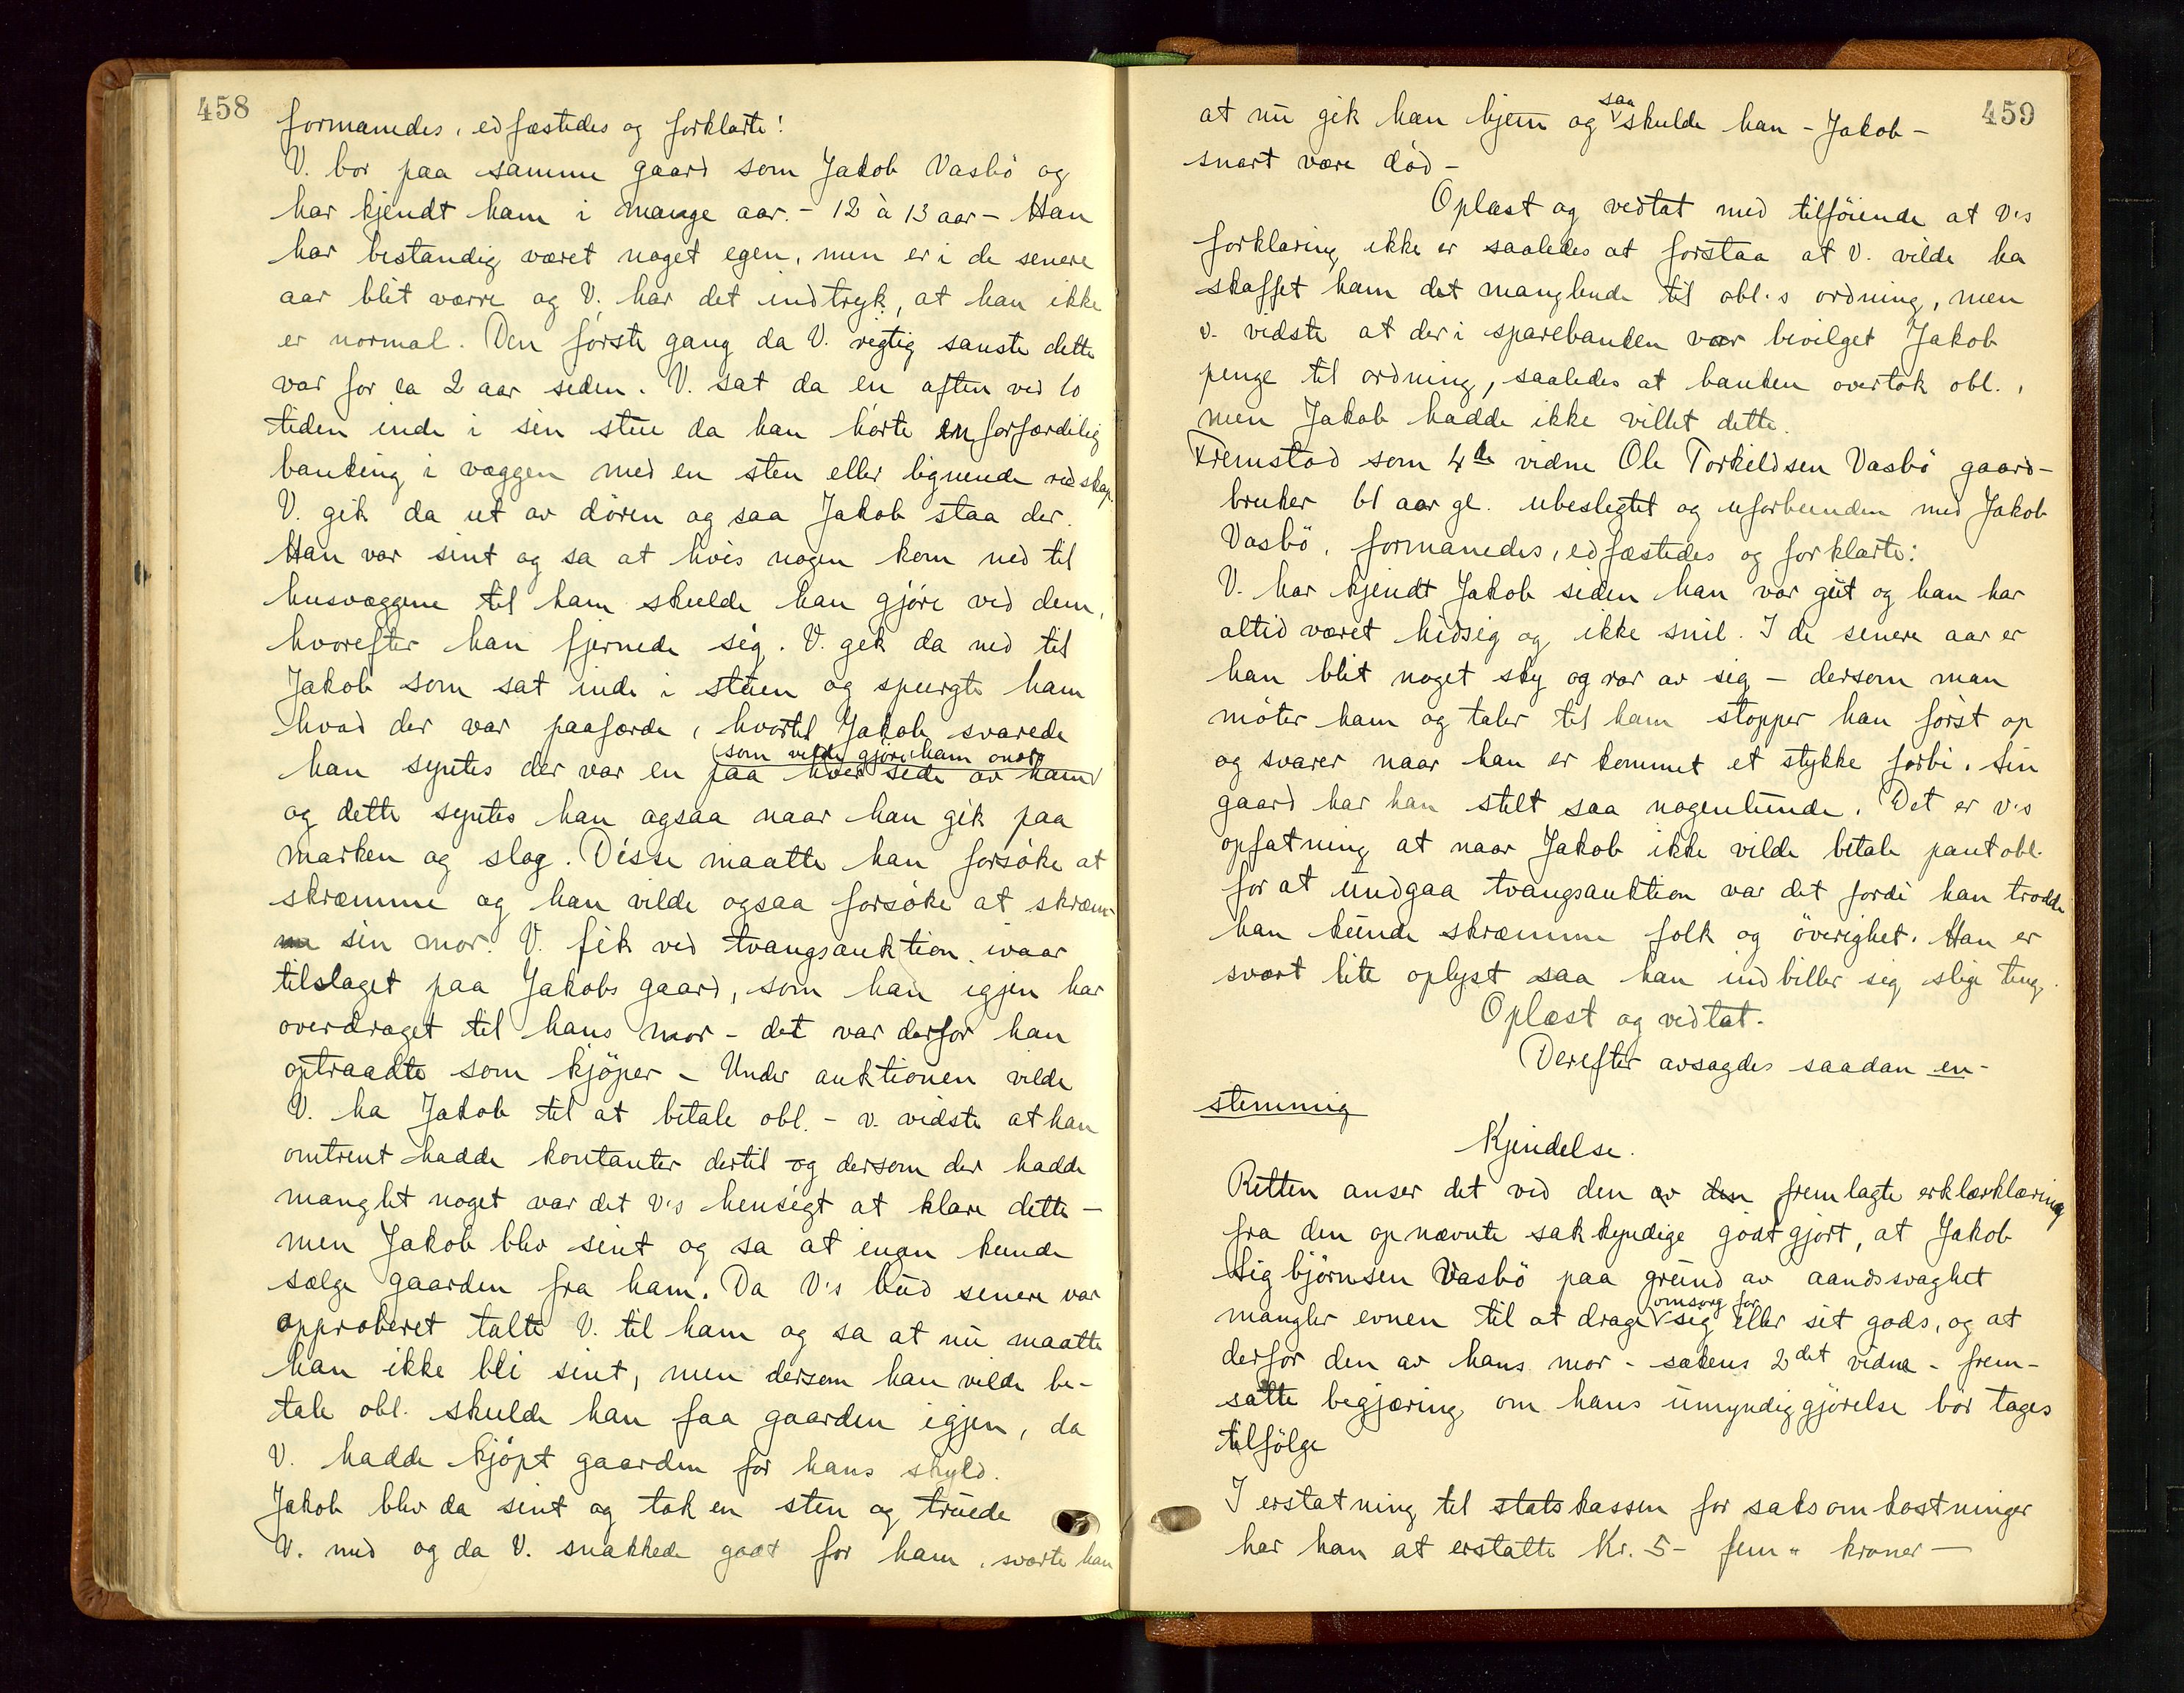 458
formanedes, edfæstedes og forklarte:
V. bor paa samme gaard som Jakob Vasbö og
har kjendt ham i mange aar. - 12 à 13 aar - Han
har bestandig været noget egen, men er i de senere
aar blit værre og V. har det indtryk, at han ikke
er normal. Den förste gang da V. rigtig sanste dette
var for ca 2 aar siden. V. sat da en aften ved 10
tiden inde i sin stue da han hörte en forfærdelig
banking i væggen med en sten eller lignende redskap.
V. gik da ut av dören og saa Jakob staa der.
Han var sint og sa at hvis nogen kom ned til
husvæggene til ham skulde han gjöre ved dem,
hvorefter han fjernede sig. V. gik da ned til
Jakob som sat inde i stuen og spurgte ham
hvad der var paafærde, hvortil Jakob svarede
(som vilde gjöre ham ondt)
han syntes der var en paa hver side av ham
og dette syntes han ogsaa naar han gik paa
marken og slog. Disse maatte han forsöke at
skræmme og han vilde ogsaa forsöke at skræm-
me sin mor. V. fik ved tvangsauktion ivaar
tilslaget paa Jakobs gaard, som han igjen har
overdraget til hans mor - det var derfor han
optraadte som kjöper - Under auktionen vilde
V. ha Jakob til at betale obl. - v. vidste at han
omtrent hadde kontanter dertil og dersom der hadde
manglet noget var det v's hensigt at klare dette -
men Jakob blev sint og sa at ingen kunde
sælge gaarden fra ham. Da V's bud senere var
approberet talte V. til ham og sa at nu maatte
han ikke bli sint, men dersom han vilde be-
tale obl. skulde han faa gaarden igjen, da
V. hadde kjöpt gaarden for hans skyld.
Jakob blev da sint og tok en sten og truede
V. med og da V. snakkede godt for ham, svarte han
459
saa
at nu gik han hjem og skulde han - Jakob -
snart være död -
Oplæst og vedtat med tilföiende at v's
forklaring ikke er saaledes at forstaa at V. vilde ha
skaffet ham det manglende til obl.s ordning, men
v. vidste at der i sparebanken var bevilget Jakob
penge til ordning, saaledes at banken overtok obl.,
men Jakob hadde ikke villet dette.
Fremstod som 4de vidne Ole Torkildsen Vasbö gaard-
bruker 61 aar gl. ubeslegtet og uforbunden med Jakob
Vasbö, formanedes, edfæstedes og forklarte:
V. har kjendt Jakob siden han var gut og han har
altid været hidsig og ikke snil. I de senere aar er
han blit noget sky og rar av sig - dersom man
möter ham og taler til ham stopper han först op
og svarer naar han er kommet et stykke forbi. Sin
gaard har han stelt saa nogenlunde. Det er v's
opfatning at naar Jakob ikke vilde betale pantobl.
for at undgaa tvangsauktion var det fordi han trodde
han kunde skræmme folk og överighet. Han er
svært lite oplyst saa han indbiller sig slige ting.
Oplæst og vedtat.
Derefter avsagdes saadan en-
stemmig
Kjendelse.
Retten anser det ved den av den fremlagte erklærklæring
fra den opnævnte sakkyndige godtgjort, at Jakob
Sigbjörnsen Vasbö paa grund av aandssvaghet
omsorg for
mangler evnen til at drage sig eller sit gods, og at
derfor den av hans mor - sakens 2det vidne - frem-
satte begjæring om hans umyndiggjörelse bör tages
tilfölge
I erstatning til statskassen for saksomkostninger
har han at erstatte Kr. 5- fem " kroner -